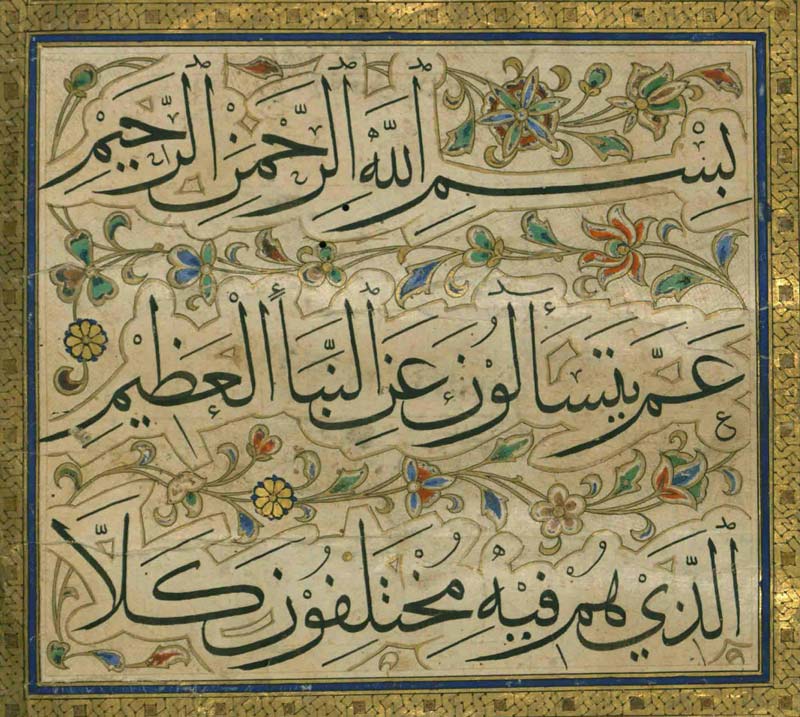 بِسْمِ اللّٰهِ الرَّحْمٰنِ الرَّحِيْمِ
عَمَّ يَتَسَآءَلُوْنَ عَنِ النَّبَأِ الْعَظِيْمِ
الَّذِيْ هُمْ فِيْهِ مُخْتَلِفُوْنَ كَلَّا